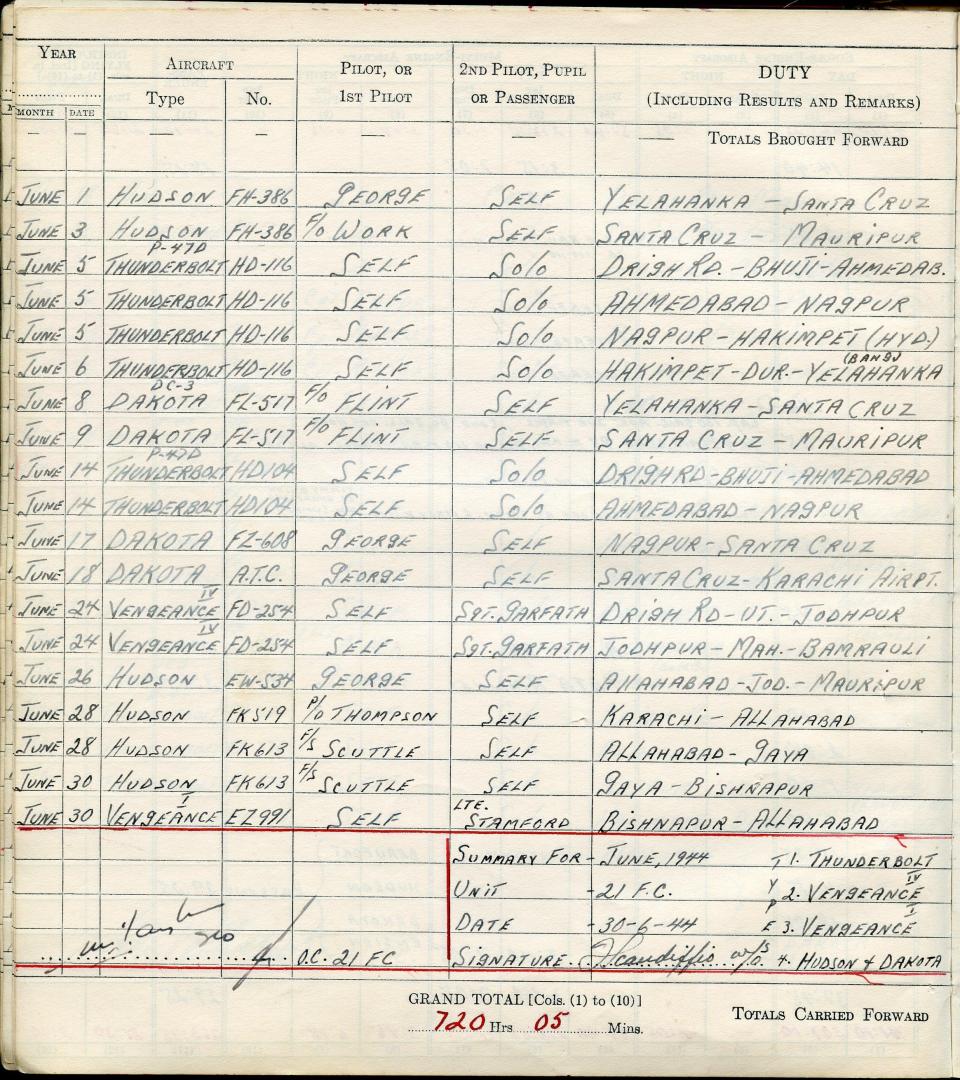 YEAR AIRCRAFT PILOT, OR 2ND PILOT, PUPIL DUTY
MONTH DATE Type No. 1ST PILOT OR PASSENGER (INCLUDING RESULTS AND REMARKS)
— — — — TOTALS BROUGHT FORWARD
JUNE 1 HUDSON FH-386 GEORGE SELF YELAHANKA - SANTA CRUZ
JUNE 3 HUDSON FH-386 F/O WORK SELF SANTA CRUZ - MAURIPUR
JUNE 5 P-47D THUNDERBOLT HD-116 SELF SOLO DRIGH RD. - BHUJI-AHMEDAB.
JUNE 5 THUNDERBOLT HD-116 SELF SOLO AHMEDABAD - NAGPUR
JUNE 5 THUNDERBOLT HD-116 SELF SOLO NAGPUR - HAKIMPET (HYD.)
JUNE 6 THUNDERBOLT HD-116 SELF SOLO HAKIMPET-DUR.-YELAHANKA (BANG)
JUNE 8 DC-3 DAKOTA FL-517 F/O FLINT SELF YELAHANKA-SANTA CRUZ
JUNE 9 DAKOTA FL-517 F/O FLINT SELF SANTA CRUZ - MAURIPUR
JUNE 14 P-47D THUNDERBOLT HD104 SELF SOLO DRIGH RD-BHUJI-AHMEDABAD
JUNE 14 THUNDERBOLT HD104 SELF SOLO AHMEDABAD-NAGPUR
JUNE 17 DAKOTA FZ-608 GEORGE SELF NAGPUR-SANTA CRUZ
JUNE 18 DAKOTA A.T.C. GEORGE SELF SANTA CRUZ-KARACHI AIRPT.
JUNE 24 VENGEANCE IV FD-254 SELF SGT. GARFATH DRIGH RD-UT.-JODHPUR
JUNE 24 VENGEANCE IV FD-254 SELF SGT. GARFATH JODHPUR-MAH.-BAMRAULI
JUNE 26 HUDSON EW-534 GEORGE SELF ALLAHABAD-JOD.-MAURIPUR
JUNE 28 HUDSON FK519 P/O THOMPSON SELF - KARACHI-ALLAHABAD
JUNE 28 HUDSON FK613 F/S SCUTTLE SELF ALLAHABAD-GAYA
JUNE 30 HUDSON FK613 F/S SCUTTLE SELF GAYA-BISHNAPUR
JUNE 30 VENGEANCE I EZ991 SELF LTE. STAMFORD BISHNAPUR-ALLAHABAD
SUMMARY FOR - JUNE, 1944 T 1. THUNDERBOLT
UNIT - 21 F.C. Y 2. VENGEANCE IV
DATE - 30-6-44 P E 3. VENGEANCE I
O.C. 21 FC SIGNATURE. W/O. 4. HUDSON & DAKOTA
GRAND TOTAL [Cols. (1) to (10)] TOTALS CARRIED FORWARD
720 Hrs 05 Mins.